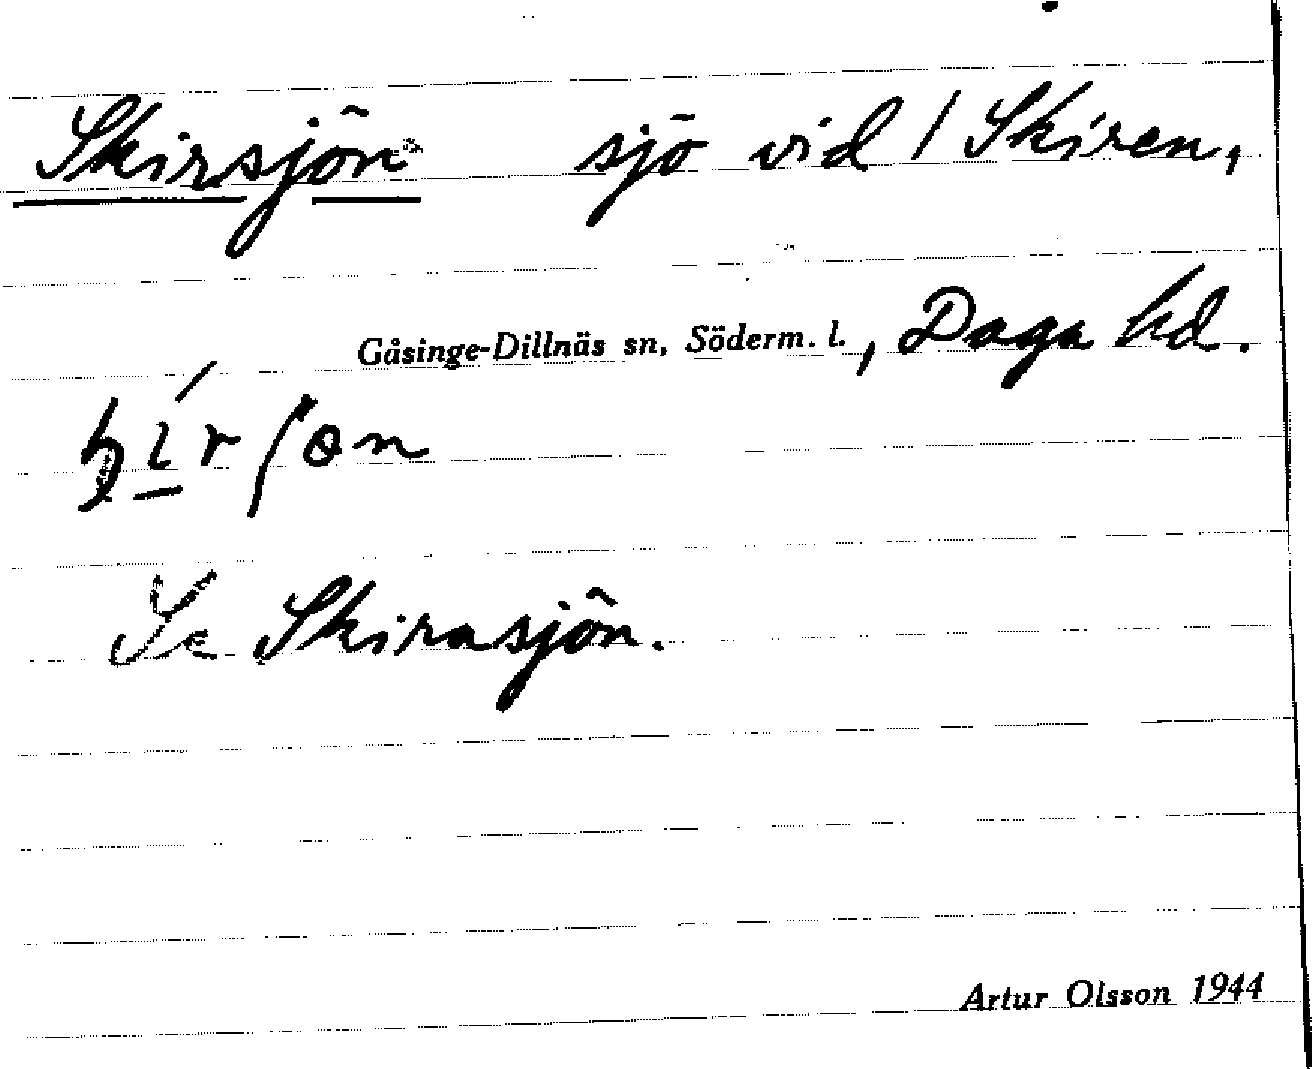 Skirsjön sjö vid / Skiren,
Gåsinge-Dillnäs sn, Söderm. l., Daga hd.
Se Skirasjön.
Artur Olsson 1944